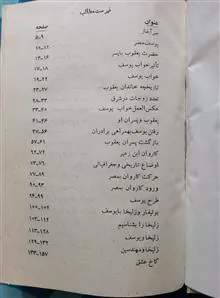 فهرست مطالب
عنوان صفحه
سرآغاز ۹-۵
یوسف مصر ۱۲-
حضرت یعقوب با پسر ۱۶-۱۳
تأثیر خواب یوسف ۱۸-۱۷
خواب یوسف ۲۲-۱۹
تاریخچه خاندان یعقوب ۲۷-۲۳
تعدد زوجات در شرق ۳۳-۲۸
عکس‌العمل خواب یوسف ۳۸-۳۳
یعقوب و پسران او
رفتن یوسف بهمراهی برادران ۵۶-
بازگشت پسران یعقوب ۶۱-۵۷
کاروان ابن زعیر ۷۲-
اوضاع تاریخی و جغرافیائی ۷۶-۷۳
حرکت کاروان بمصر ۸۹-۷۷
ورود کاروان بمصر ۹۳-۹۰
طرح یوسف ۹۹-۹۴
بوتیفار و زلیخا با یوسف ۱۰۲-۱۰۰
زلیخا را بشناسیم ۱۱۲-۱۰۳
زلیخا و یوسف ۱۲۸-۱۱۳
زلیخا و مهندسین ۱۳۲-۱۲۹
کاخ عشق ۱۵۷-۱۳۳